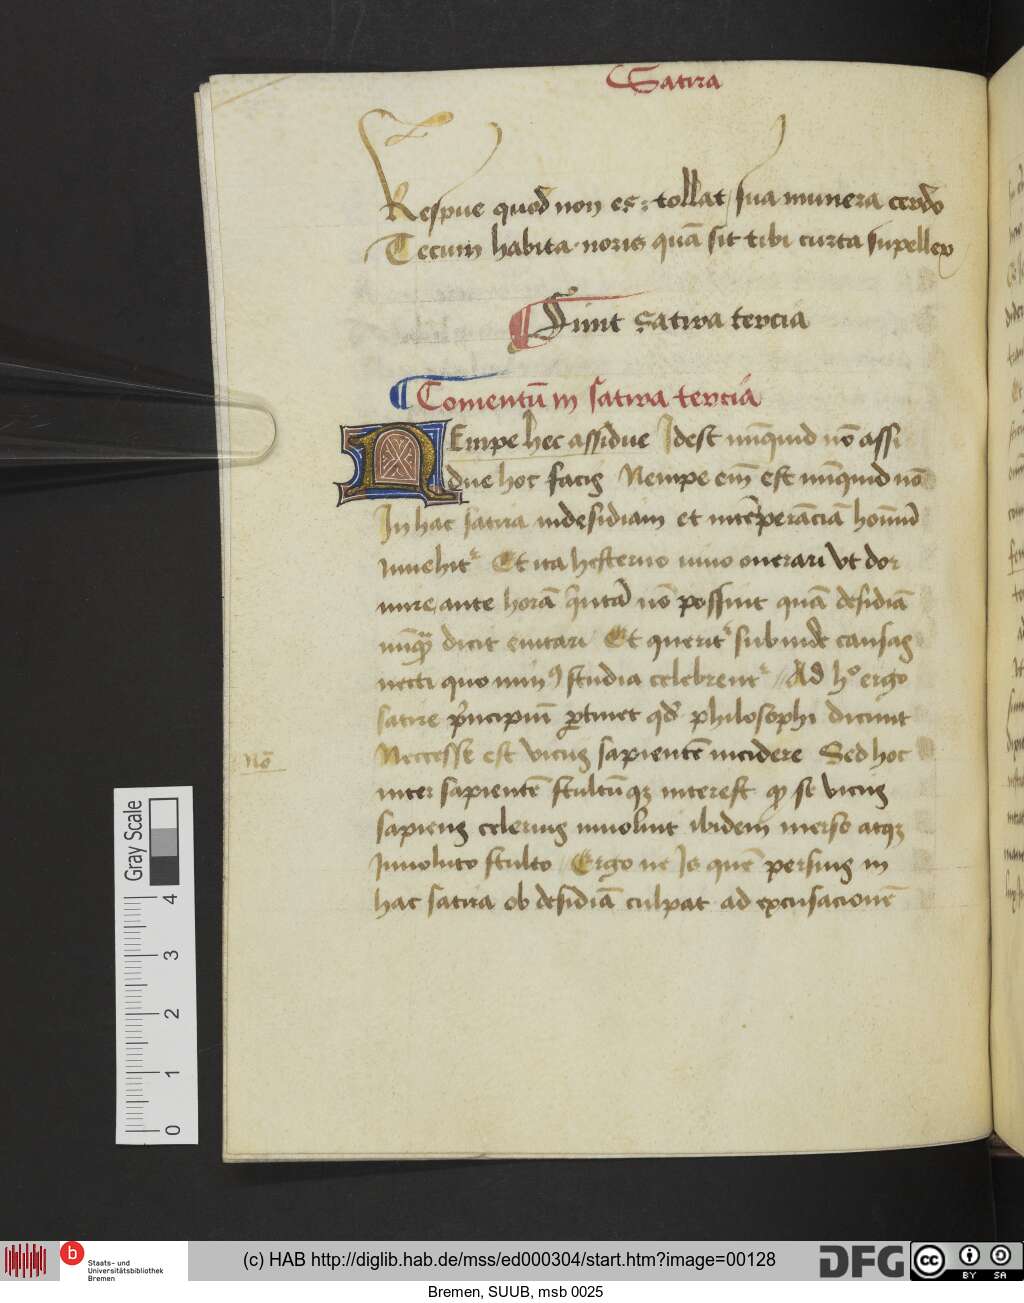 Satira
Respue quod non es: tollat sua munera cerdo
Tecum habita noris quā sit tibi curta supellex
Finit Satira tercia
Comentū in satira tercia
Nempe hec assidue Idest nūquid nō assi
due hoc facis Nempe eīm est nūquid nō
In hac satira in desidiam et intēperāciā hominū
inuehit Et ita hesterno uino onerari vt dor
mire ante horā quītā nō possint quā desidiā
nūquā dicit euitari Et querit subinde causas
necti quo min9 studia celebrent Ad hº ergo
satire prīncipiū ptinet qd philosophi dicunt
Neccesse est vicus sapientē incidere Sed hoc
nō
inter sapientē stultūqꝫ interest qd se vicus
sapiens celerius inuoluit ibidem merso atqꝫ
Inuoluto stulto Ergo ne Is quē persius in
hac satira ob desidiā culpat ad excusacionē
Gray Scale
4
3
2
1
0
b
Staats- und
Universitätsbibliothek
Bremen
(c) HAB http://diglib.hab.de/mss/ed000304/start.htm?image=00128
DFG
cc
BY SA
Bremen, SUUB, msb 0025